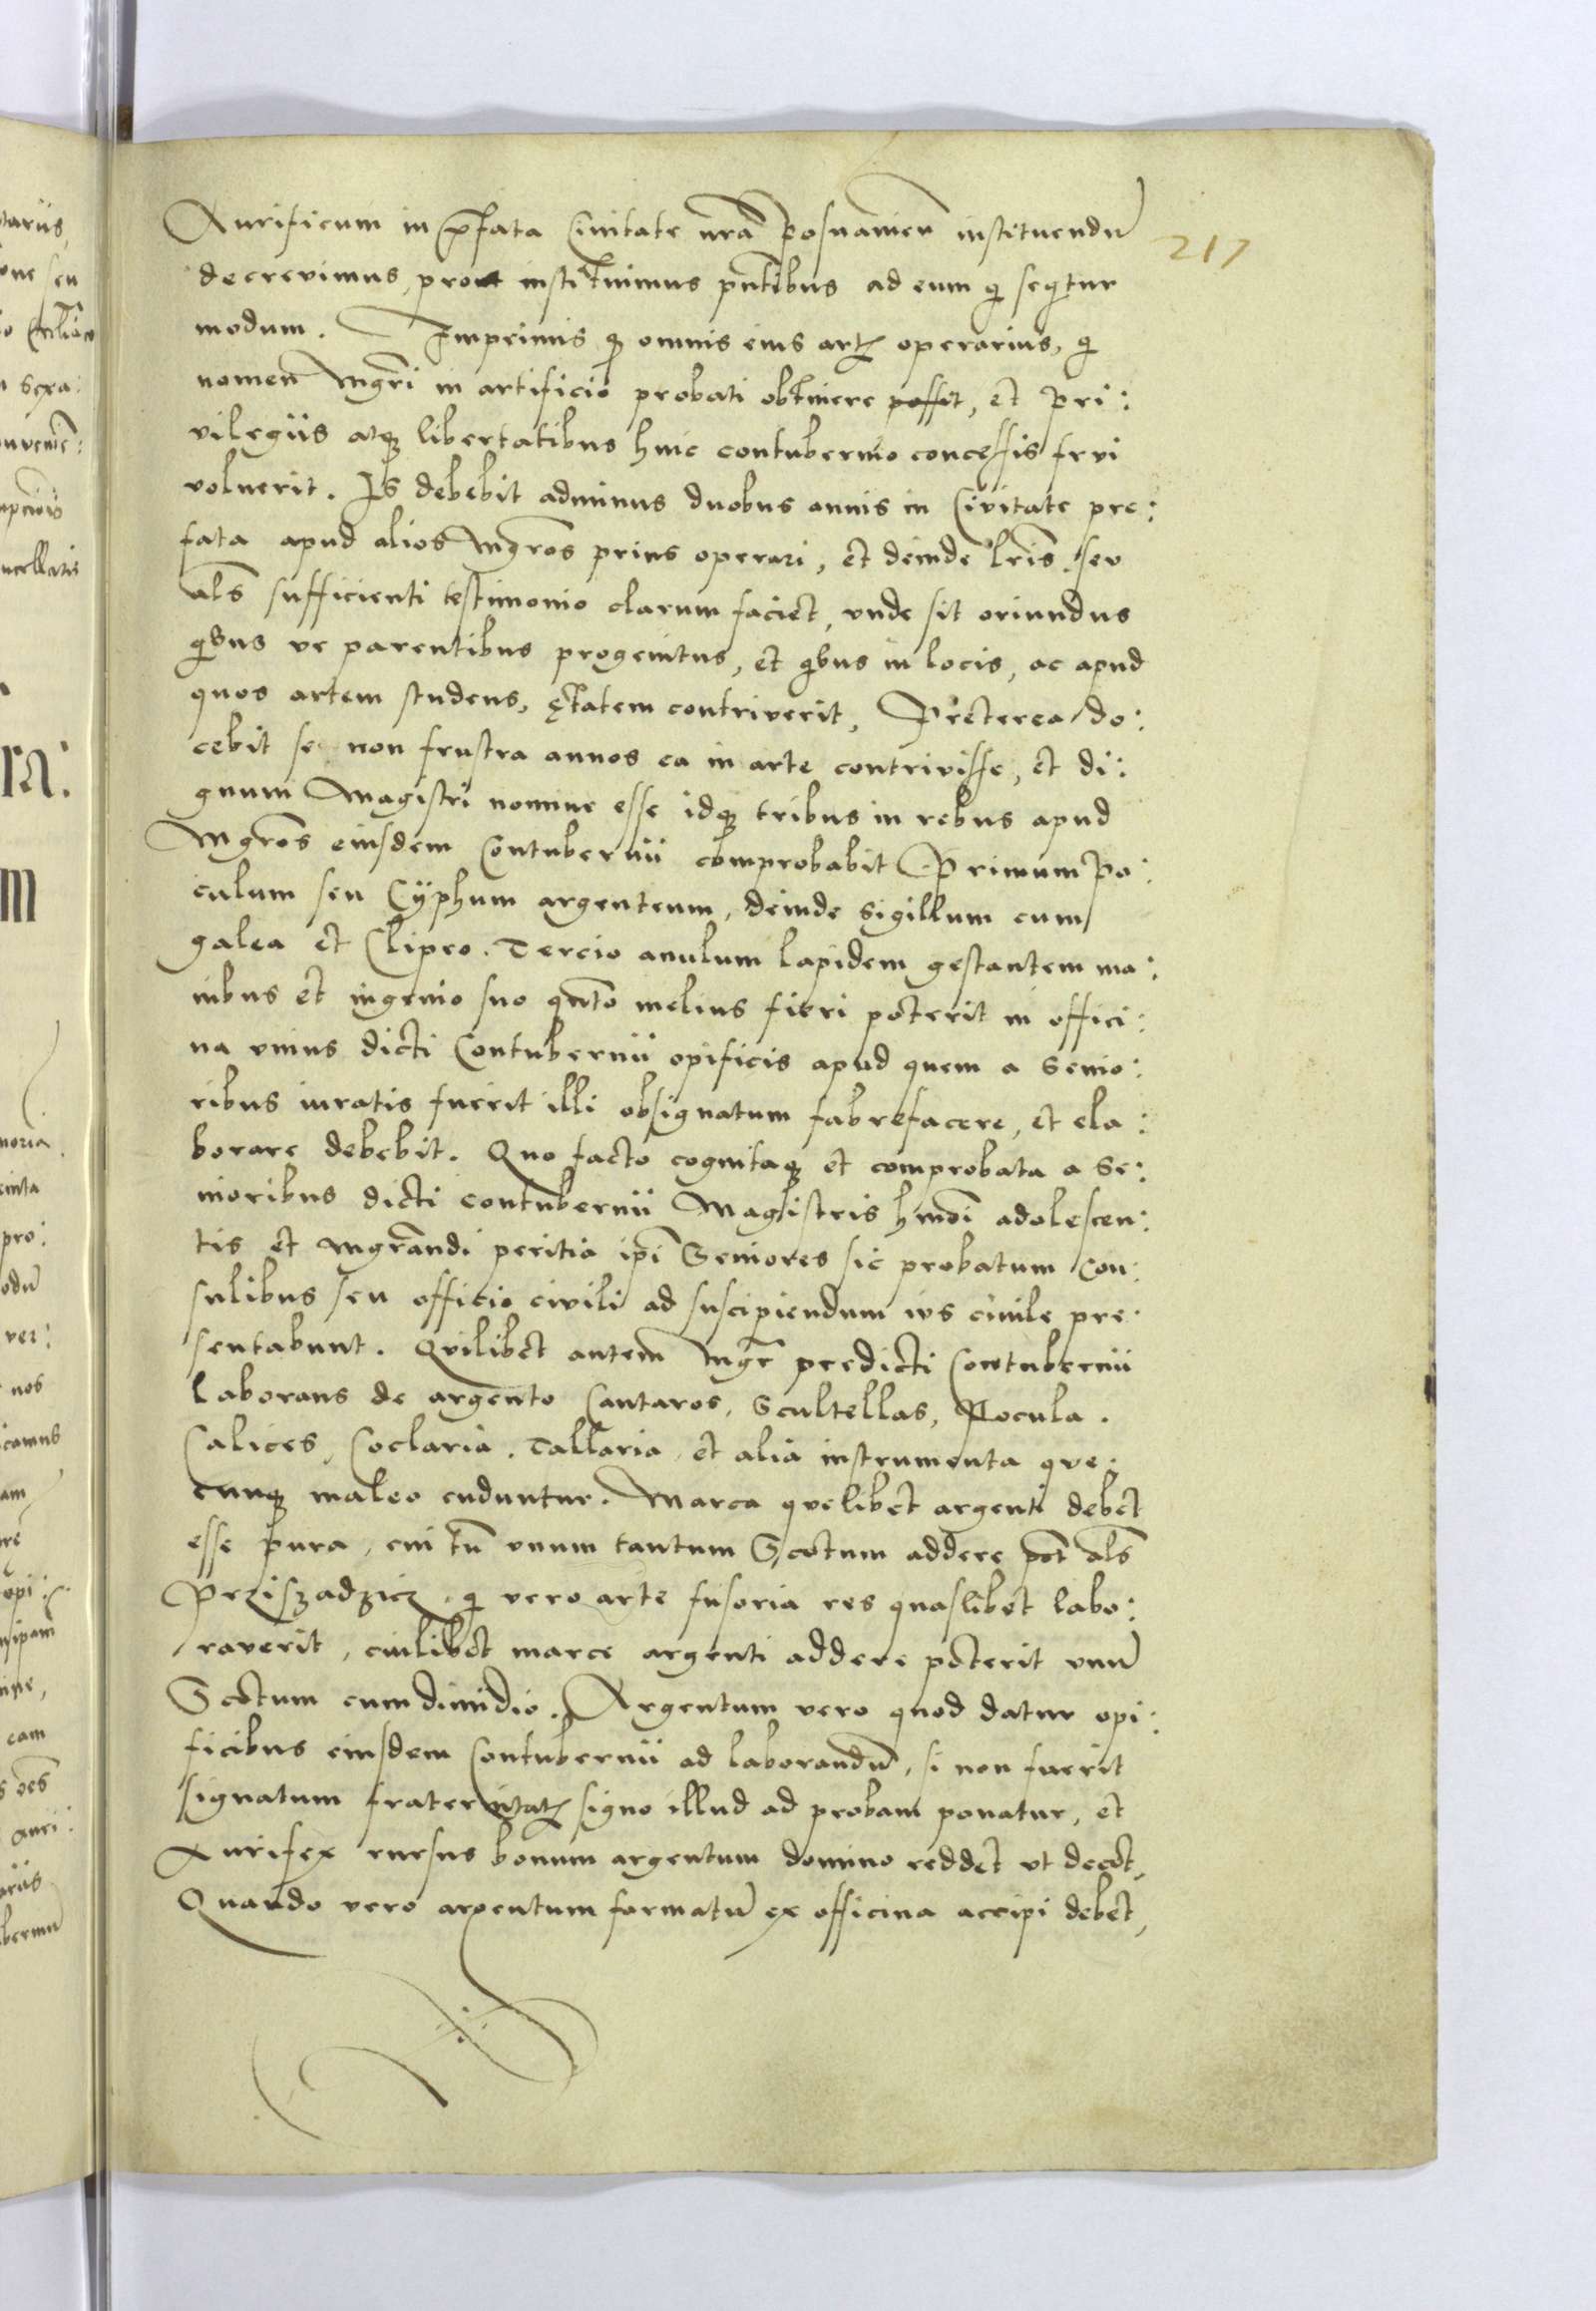 217
Aurificum in p̃fata Ciuitate nr̃a Posnanien̄ instituendū
decrevimus, prout instituimus pn̄tibus ad eum q̇ seq̇tur
modum. Imprimis q omnis eius artꝭ operarius, q̇
nomen Mgr̃i in artificio probati obtinere possit, et Pri:
vilegiis atqꝫ libertatibus huic contubernio concessis frvi
voluerit. Is debebit adminus duobus annis in Civitate pre:
fata apud alios Mgr̃os prius operari, et deinde lr̃is sev
al̃s sufficienti testimonio clarum faciet, vnde sit oriundus
q̇bus ve parentibus progenitus, et q̇bus in locis, ac apud
quos artem studens, ętatem contriverit, Preterea do:
cebit se non frustra annos ea in arte contrivisse, et di:
gnum Magistri nomine esse idqꝫ tribus in rebus apud
Mgr̃os eiusdem Contubernii comprobabit Primum Po:
culum seu Cÿphum argenteum, deinde Sigillum cum
galea et Clipeo. Tercio anulum lapidem gestantem ma:
nibus et ingenio suo qn̄to melius fieri poterit in offici:
na vnius dicti Contubernii opificis apud quem a Senio:
ribus iuratis fuerit illi obsignatum fabrefacere, et ela:
borare debebit. Quo facto cognitaqꝫ et comprobata a Se:
nioribus dicti contubernii Magistris hm̃õi adolescen:
tis et mgr̃andi peritia ip̃i Seniores sic probatum Con:
sulibus seu officio civili ad suscipiendum ivs ciuile pre:
sentabunt. Qvilibet autem Mgr̃ predicti Contubernii
laborans de argento Cantaros, Scultellas, Pocula.
Calices, Coclaria. Tallaria, et alia instrumenta qve:
cunqꝫ maleo cuduntur. Marca qvelibet argenti debet
esse pura, cui tn̄ vnum tantum Scotum addere põt al̃s
Prziszadzicz. q̇ vero arte fusoria res quaslibet labo:
raverit, cuilibet marce argenti addere poterit vnū
Scotum cum dimidio. Argentum vero quod datur opi:
ficibus eiusdem Contubernii ad laborandū, si non fuerit
signatum fraternitatꝭ signo illud ad probam ponatur, et
Aurifex rursus bonum argentum domino reddet vt decet,
Quando vero argentum formatū ex officina accipi debet,